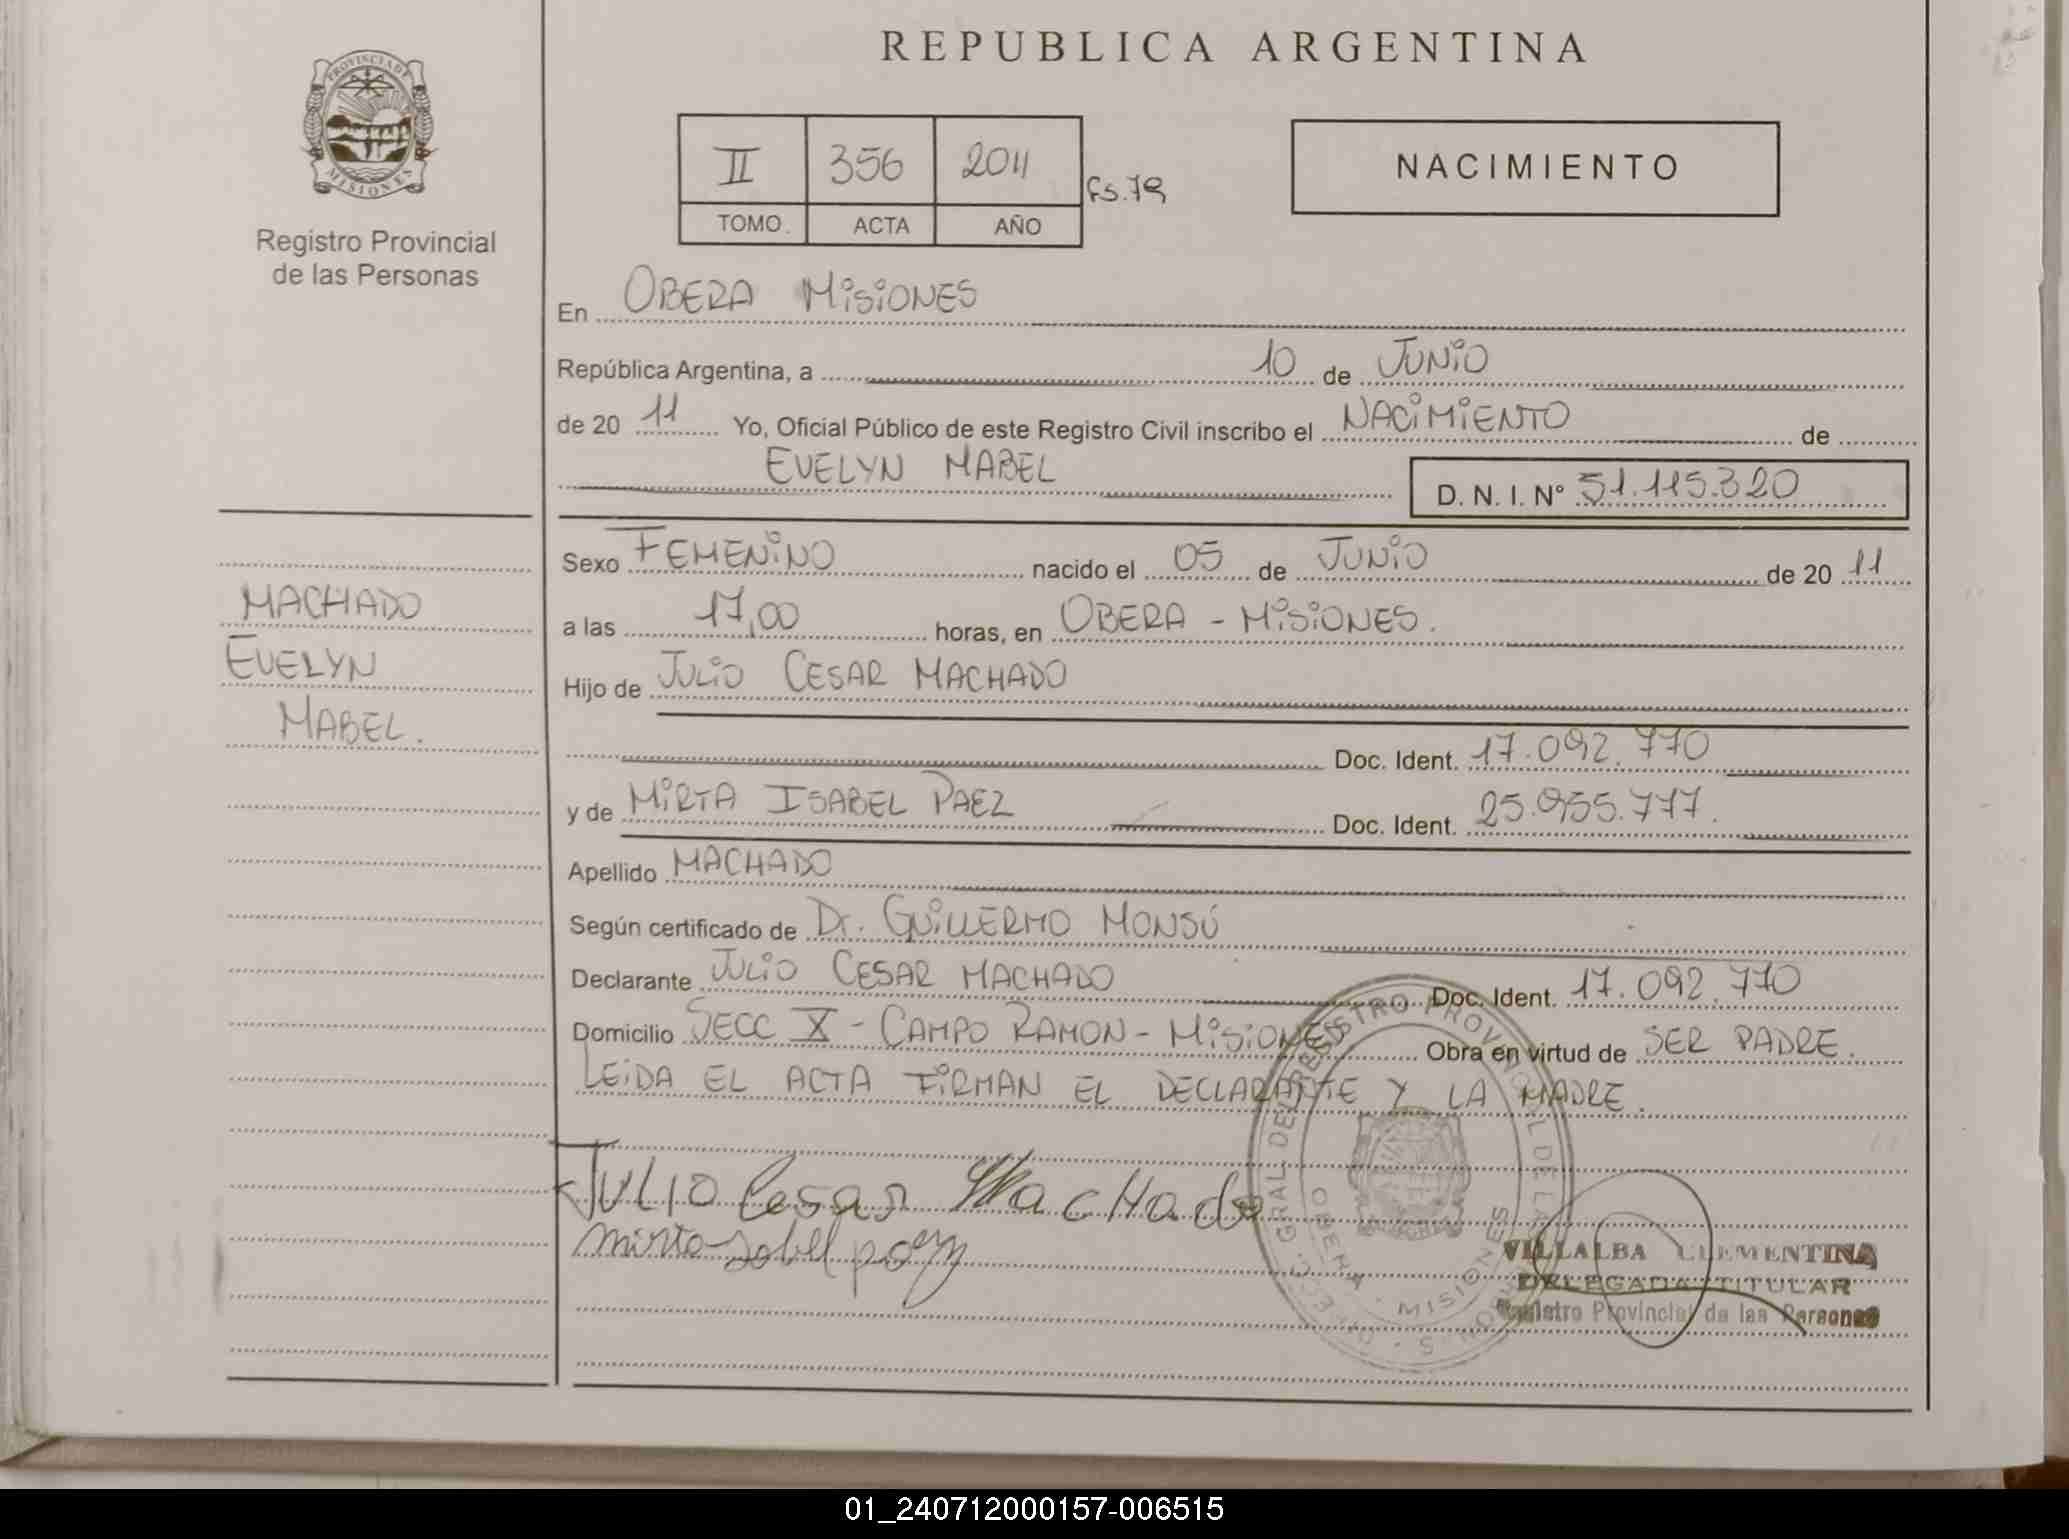 REPUBLICA ARGENTINA
PROVINCIA DE
MISIONES
Registro Provincial
de las Personas
II 356 2011 Fs. 79
TOMO. ACTA AÑO
NACIMIENTO
En OBERA MISIONES
República Argentina, a 10 de JUNIO
de 20 11 Yo, Oficial Público de este Registro Civil inscribo el NACIMIENTO de
EVELYN MABEL D. N. I. Nº 51.115.320
MACHADO
EVELYN
MABEL.
Sexo FEMENINO nacido el 05 de JUNIO de 20 11
a las 17,00 horas, en OBERA - MISIONES.
Hijo de JULIO CESAR MACHADO
Doc. Ident. 17.092.770
y de MIRTA ISABEL PAEZ Doc. Ident. 25.955.777.
Apellido MACHADO
Según certificado de Dr. GUILLERMO MONSÚ
Declarante JULIO CESAR MACHADO Doc. Ident. 17.092.770
Domicilio SECC X - CAMPO RAMON - MISIONES Obra en virtud de SER PADRE.
LEIDA EL ACTA FIRMAN EL DECLARANTE Y LA MADRE.
JULIO Cesar Machado
mirta isabel paez
OBERA - MISIONES
VILLALBA CLEMENTINA
DELEGADA TITULAR
Registro Provincial de las Personas
01_240712000157-006515